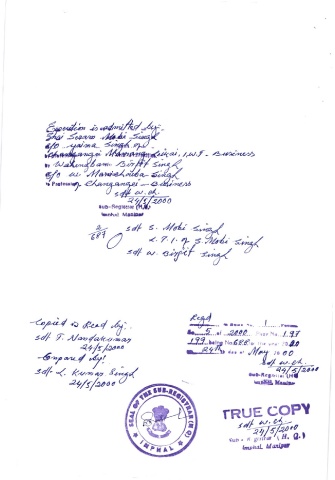 Execution is admitted by:-
Shri Soram Mobi Singh
S/O Yaima Singh of
Changangei Mamang Leikai, I.W.I - Business
Wahengbam Birjit Singh
S/O W. Manichouba Singh
of Changangei - Business
sd/- W. ch.
24/5/2000
Sub-Registrar (H.Q.)
Imphal Manipur
2/689
sd/- S. Mobi Singh
L.T.I. of S. Mobi Singh
sd/- W. Birjit Singh
Copied & Read by:-
sd/- T. Nandakumar
24/5/2000
Compared by:
sd/- L. Kumar Singh
24/5/2000
Regd
in Book No. 1
of 2000 197
199 being No 688 20
24th day of May 00
sd/- W. ch.
24/5/2000
Sub-Registrar (H.Q.)
Imphal Manipur
SEAL OF THE SUB-REGISTRAR (H.Q)
IMPHAL
TRUE COPY
sd/- W. ch.
24/5/2000
Sub-Registrar (H.Q.)
Imphal Manipur